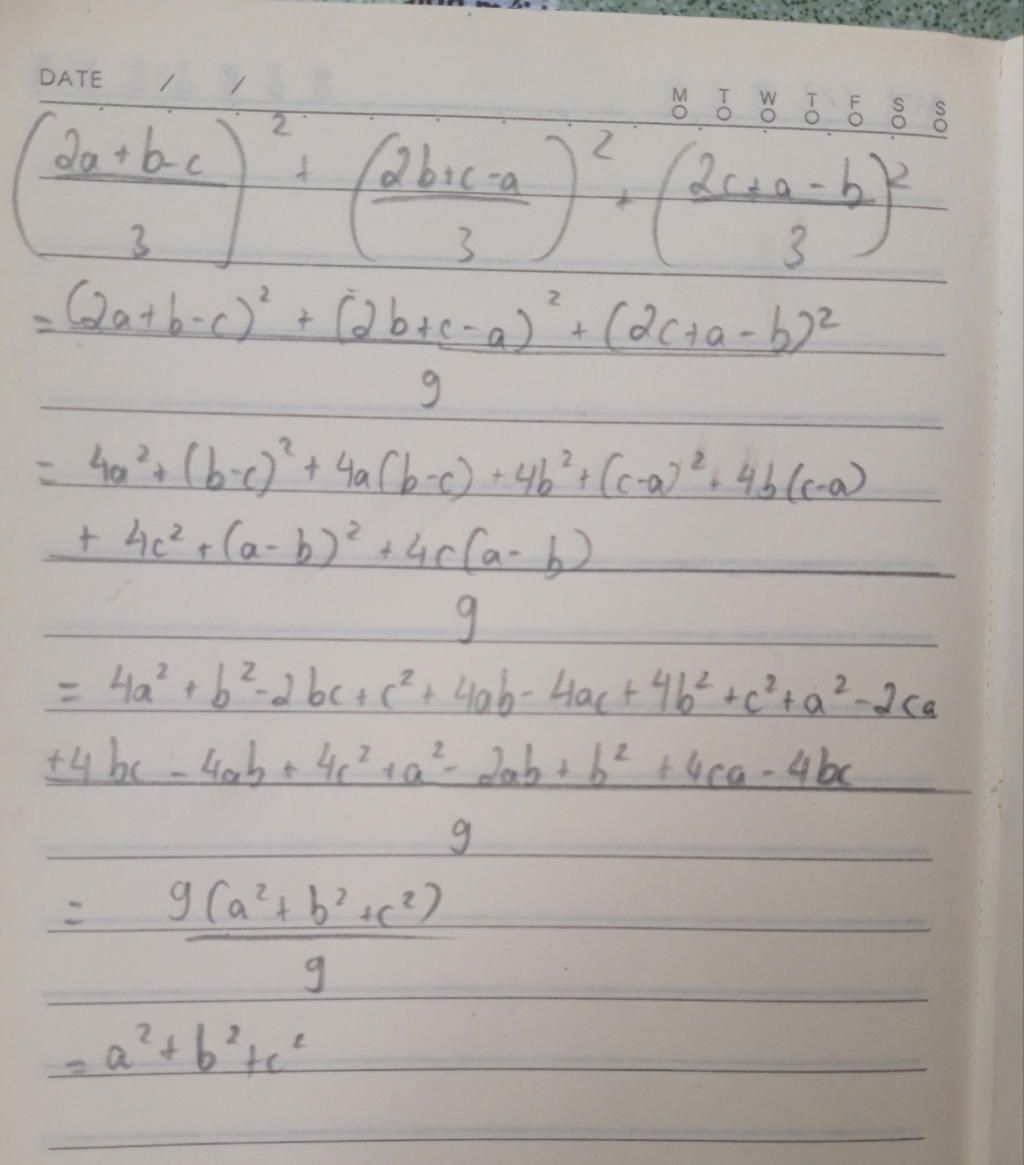 DATE / /
M T W T F S S
(2a+b-c / 3)² + (2b+c-a / 3)² + (2c+a-b / 3)²
= (2a+b-c)² + (2b+c-a)² + (2c+a-b)²
9
= 4a² + (b-c)² + 4a(b-c) + 4b² + (c-a)² + 4b(c-a)
+ 4c² + (a-b)² + 4c(a-b)
9
= 4a² + b² - 2bc + c² + 4ab - 4ac + 4b² + c² + a² - 2ca
+4bc - 4ab + 4c² + a² - 2ab + b² + 4ca - 4bc
9
= 9(a² + b² + c²)
9
= a² + b² + c²